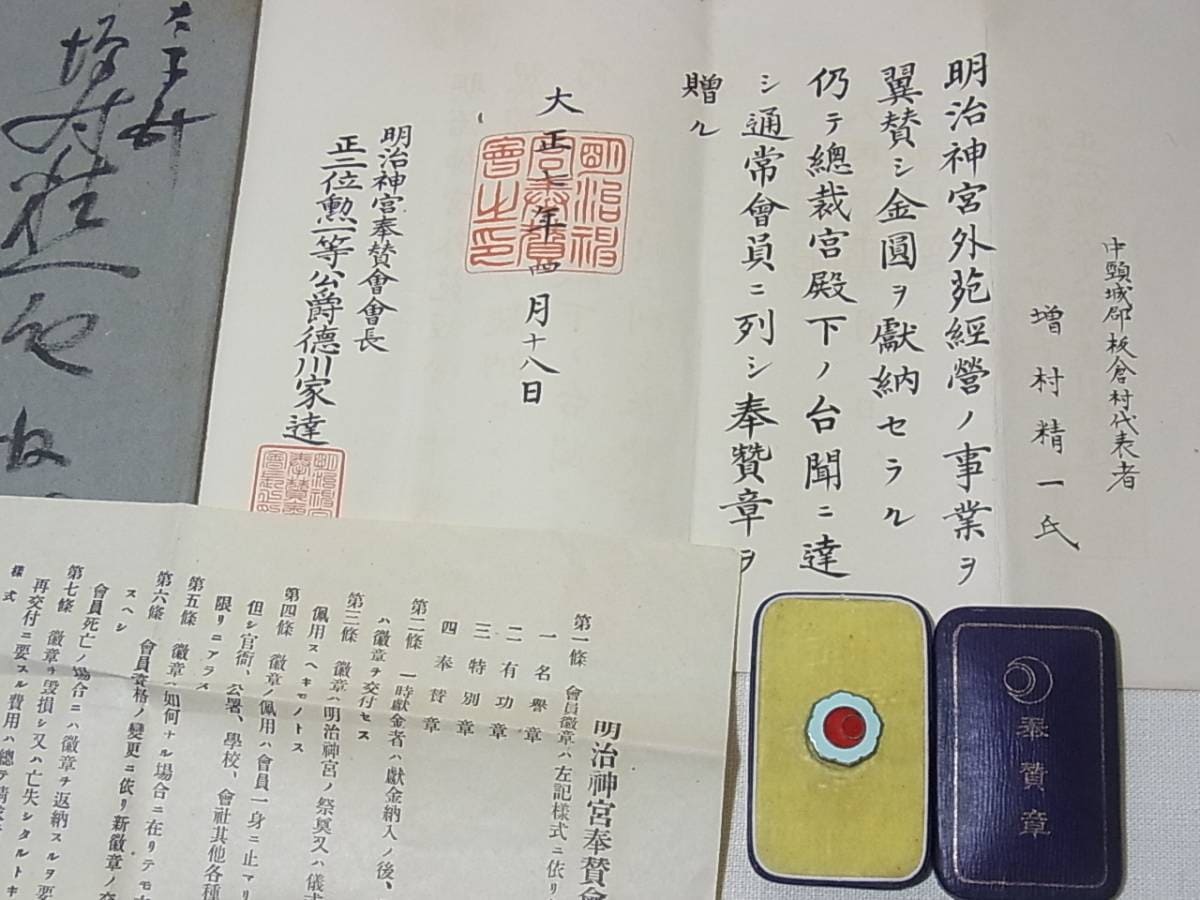 中頸城郡板倉村代表者
増村精一氏
明治神宮外苑經營ノ事業ヲ
翼賛シ金圓ヲ獻納セラル
仍テ總裁宮殿下ノ台聞ニ達
シ通常會員ニ列シ奉賛章ヲ
贈ル
大正七年四月十八日
明治神宮奉賛會之印
明治神宮奉賛會會長
正二位勲一等公爵德川家達
明治神宮奉賛會
第一條 會員徽章ハ左記樣式ニ依リ
一 名譽章
二 有功章
三 特別章
四 奉賛章
第二條 一時獻金者ハ獻金納入ノ後、
ハ徽章チ交付セス
第三條 徽章ハ明治神宮ノ祭典又ハ儀式
佩用スヘキモノトス
第四條 徽章ノ佩用ハ會員一身ニ止マリ
但シ官衙、公署、學校、會社其他各種
限リニアラス
第五條 徽章ハ如何ナル場合ニ在リテモ
第六條 會員資格ノ變更ニ依リ新徽章ノ交
スヘシ
會員死亡ノ場合ニハ徽章チ返納スルヲ要
第七條 徽章チ毀損シ又ハ亡失シタルトキ
再交付ニ要スル費用ハ總テ請求
樣式
奉賛章